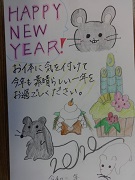 HAPPY
NEW
YEAR!
お体に気を付けて
今年も素晴らしい一年を
お過ごしください。